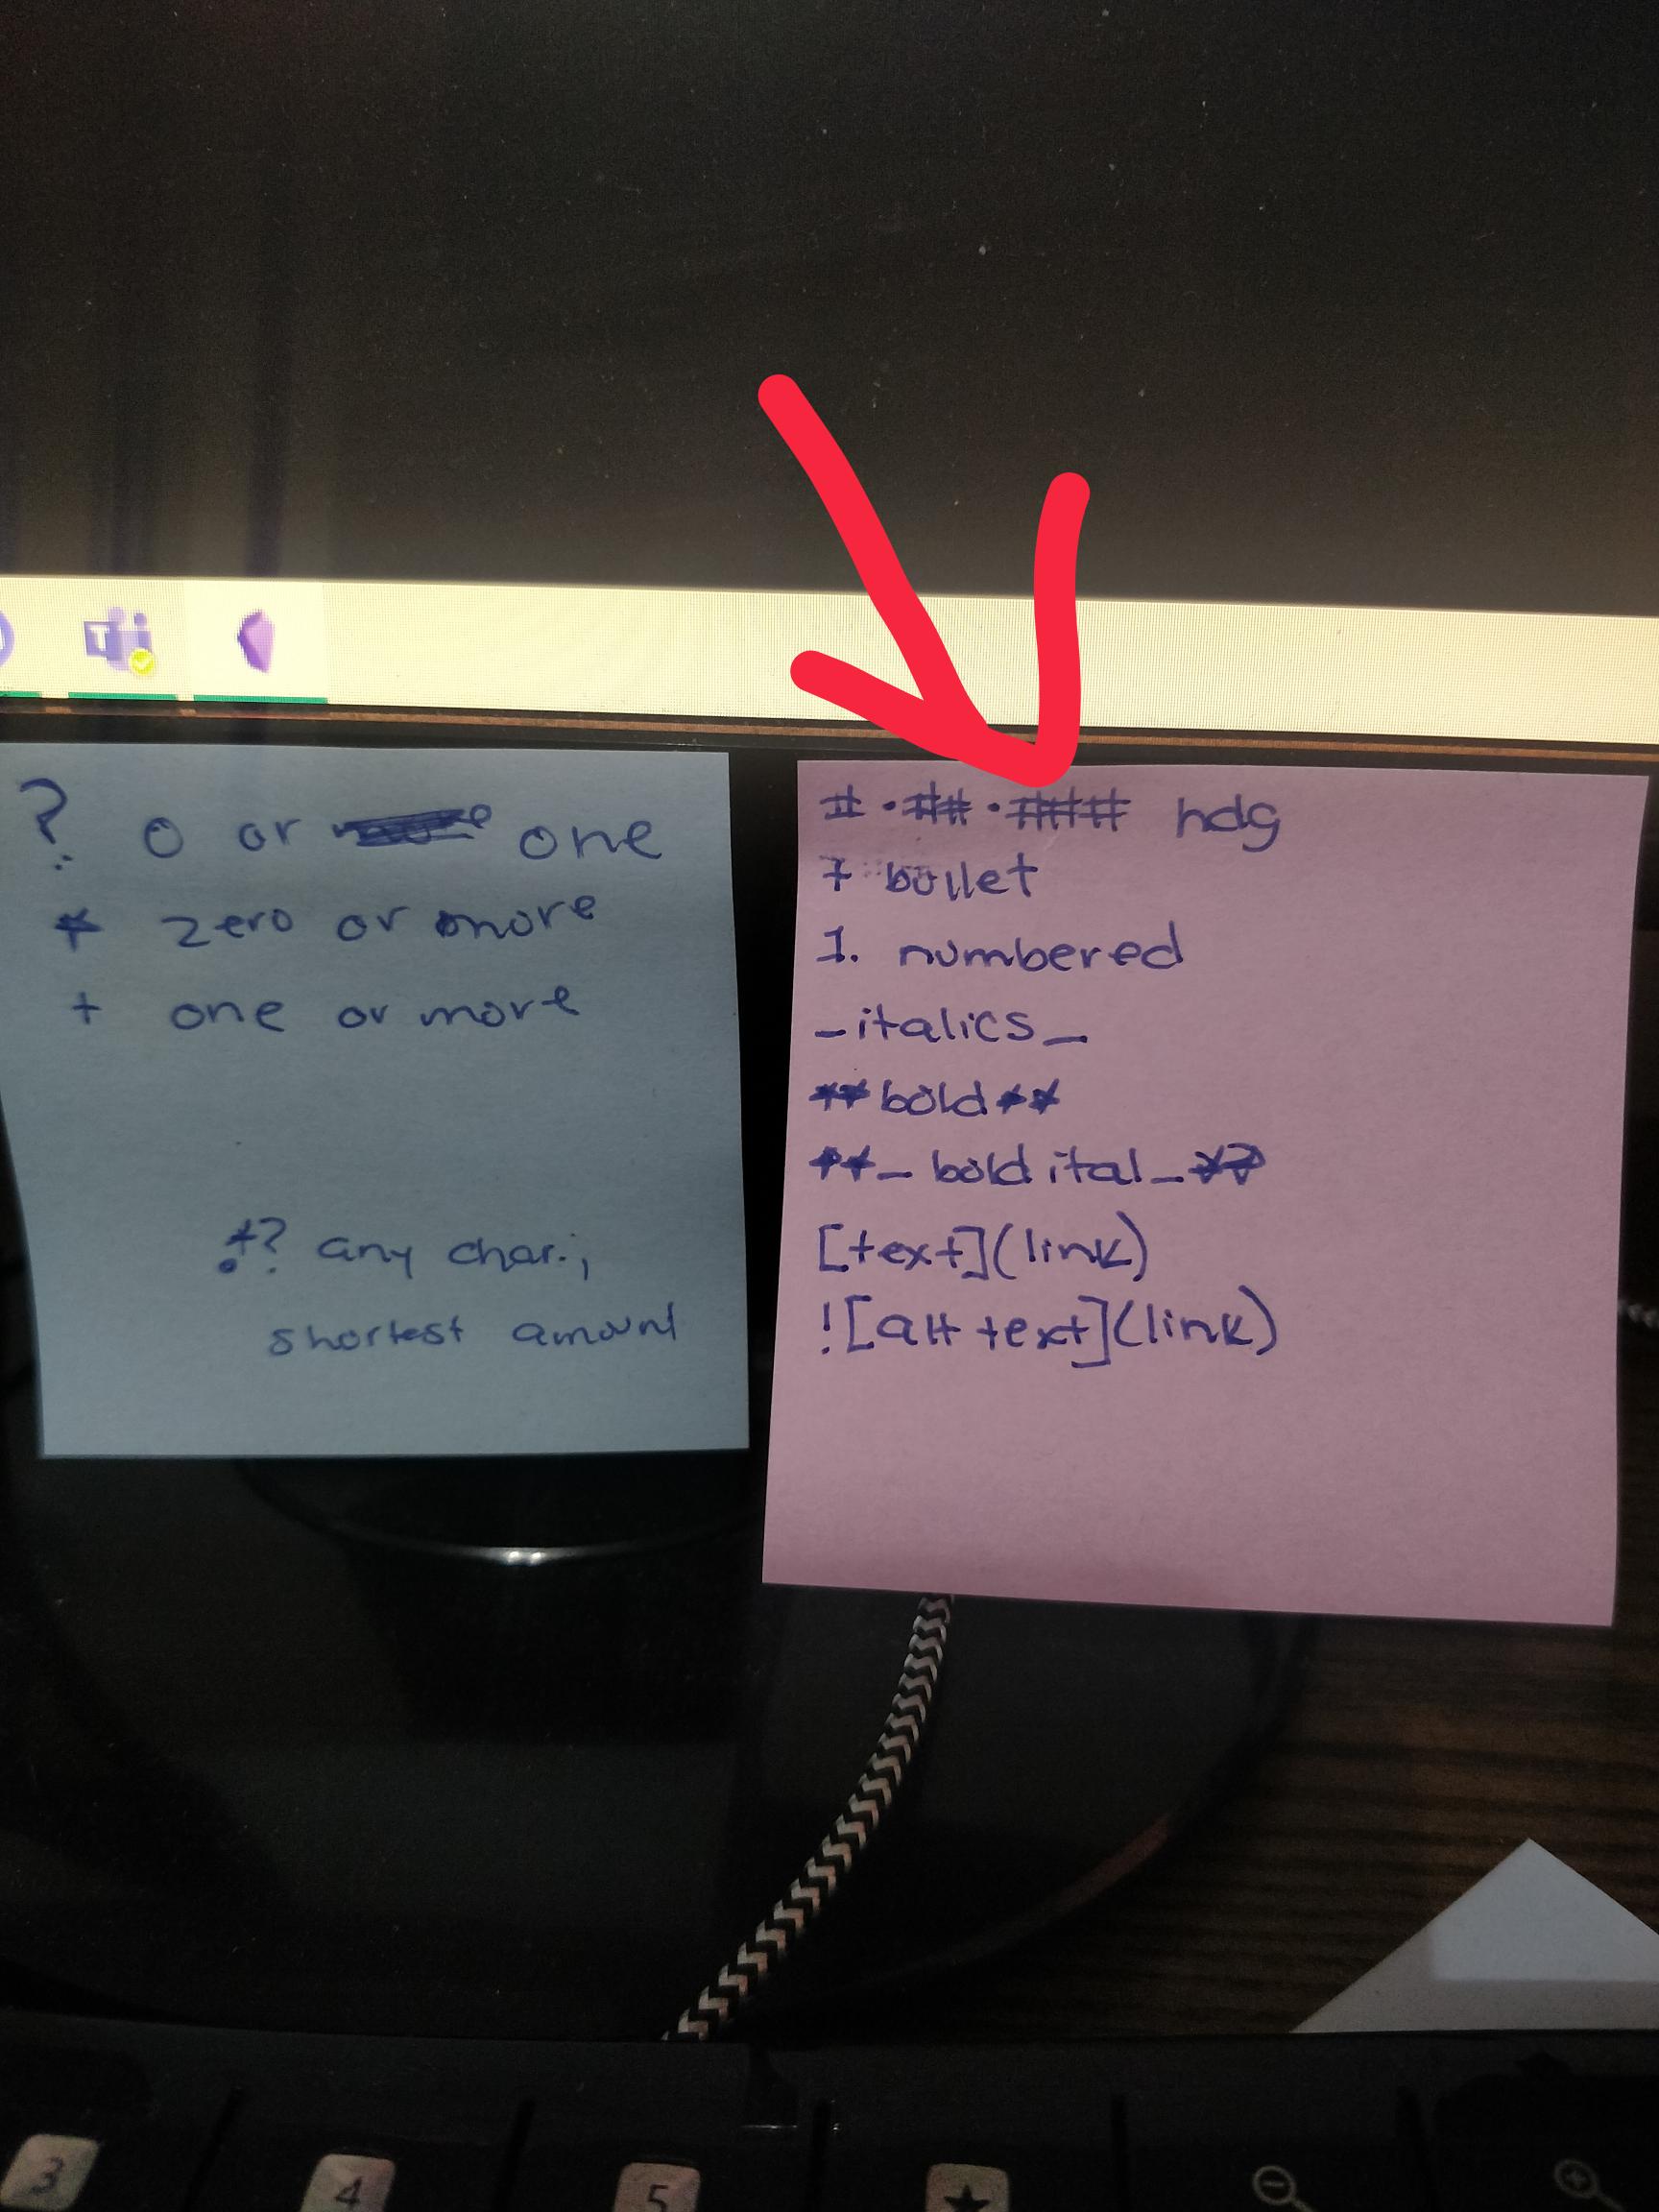 ? 0 or one
* zero or more
+ one or more
.*? any char.;
shortest amount
# · ## · ### hdg
+ bullet
1. numbered
_italics_
**bold**
**_bold ital_**
[text](link)
![alt text](link)
T
3
4
5